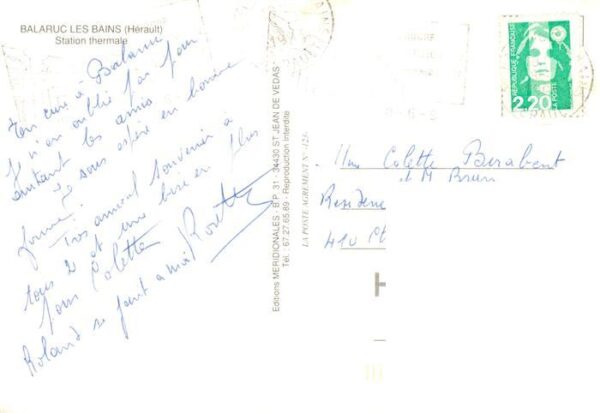 BALARUC LES BAINS (Hérault)
Station thermale
En cure à Balaruc
Je n'en oublie pas pour
autant les amis
Je vous espère en bonne
forme.
Très amical souvenir à
tous 2 et une bise en plus
pour Colette
Roland se joint à moi
Editions MERIDIONALES - B.P. 31 - 34430 ST JEAN DE VEDAS
Tél.: 67.27.65.89 - Reproduction interdite
LA POSTE AGREMENT N°
REPUBLIQUE FRANÇAISE
LA POSTE
2,20
Mme Colette
et M Brun